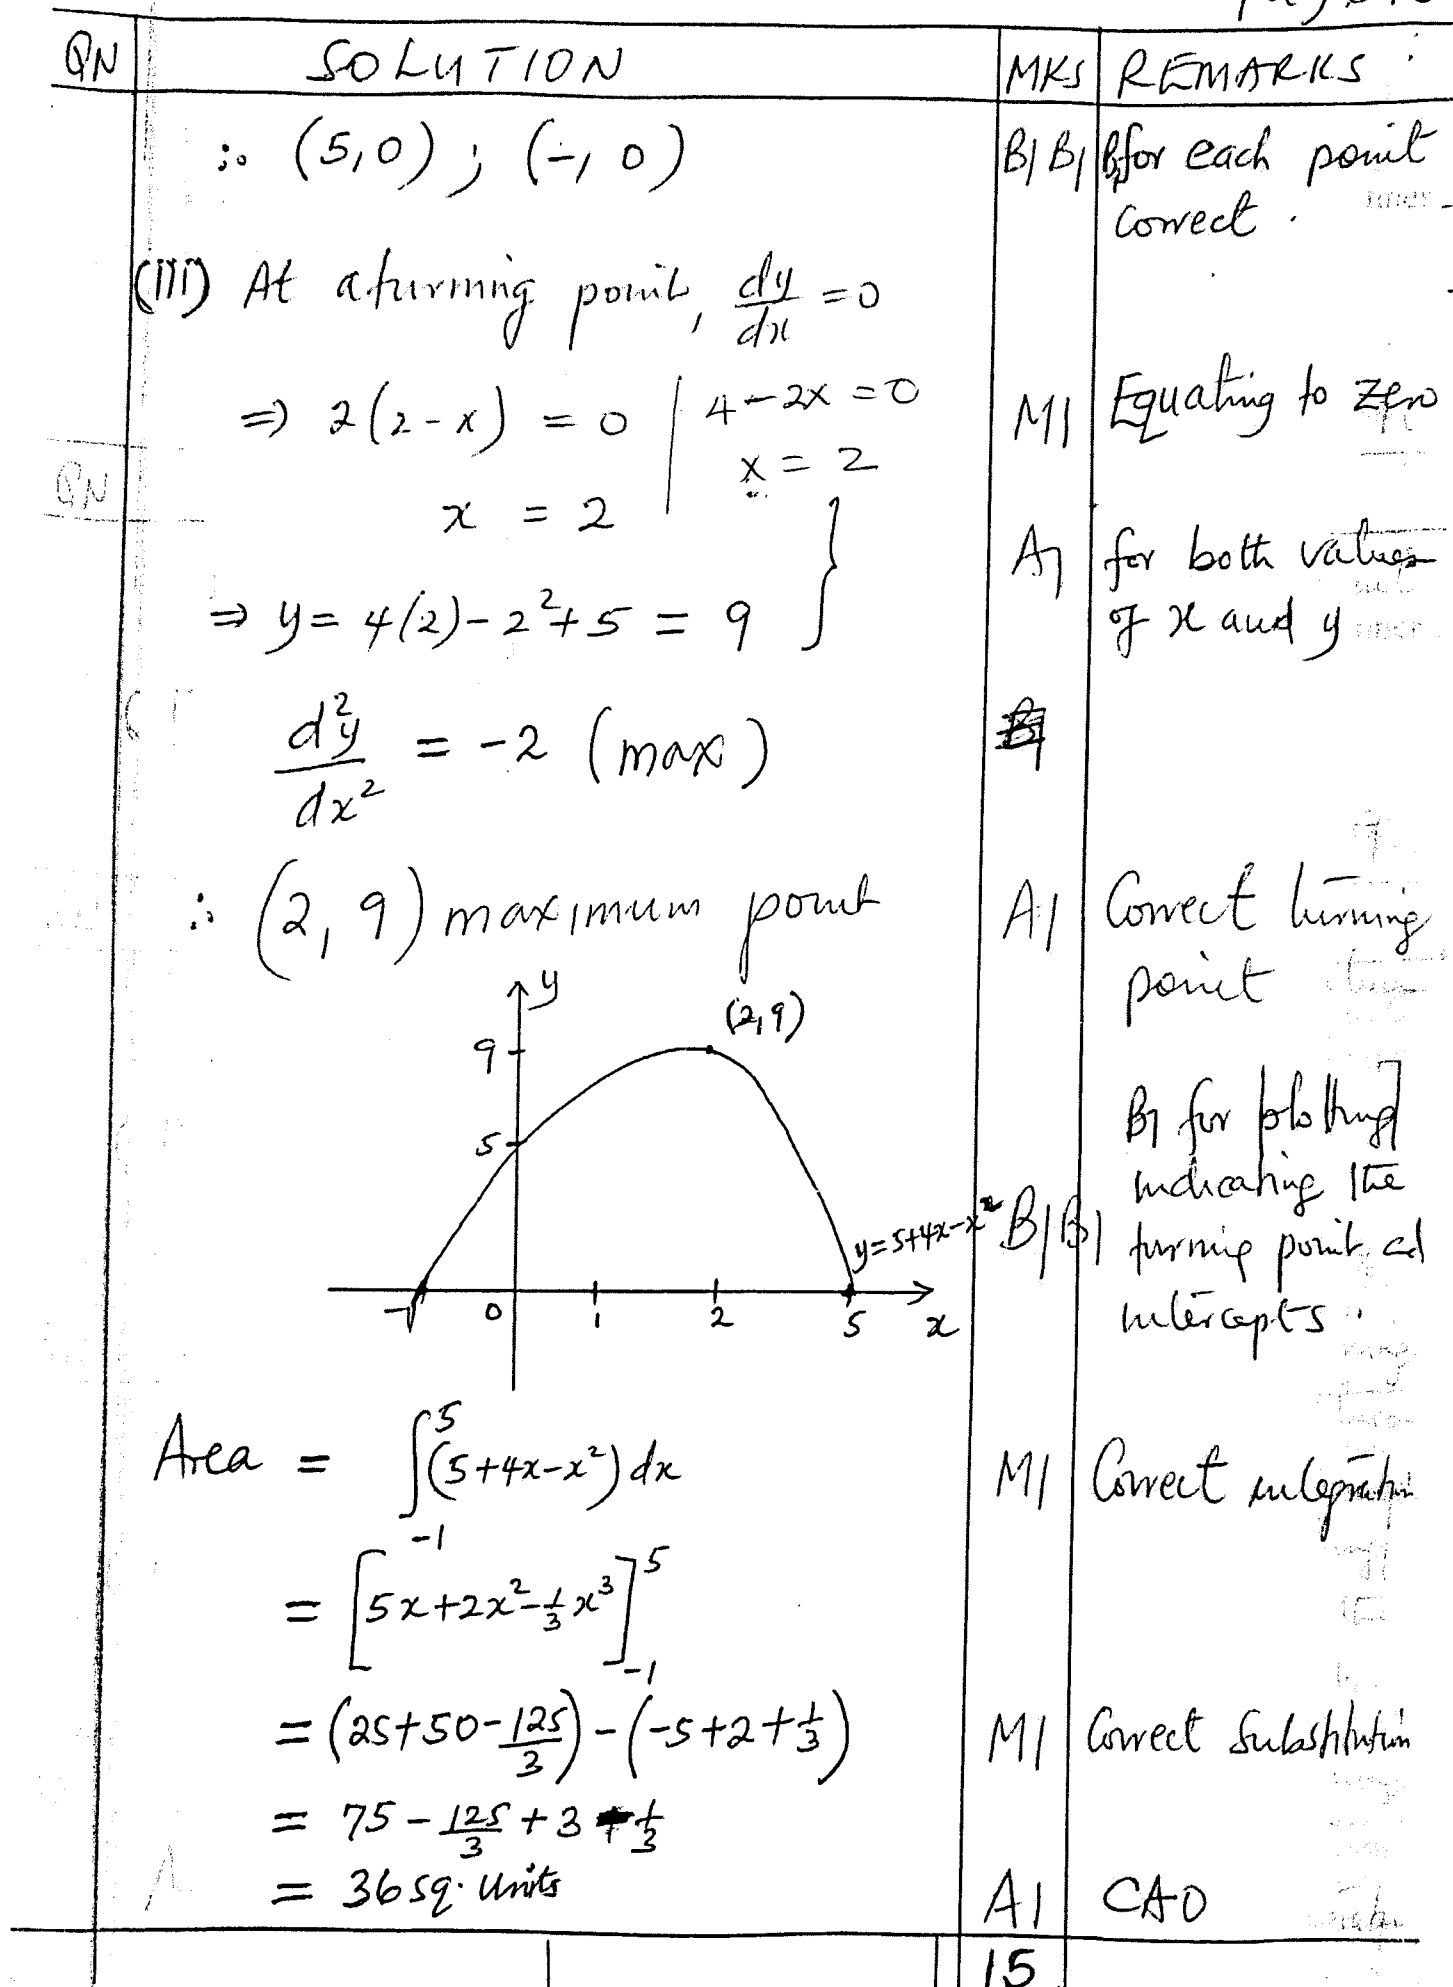 QN SOLUTION MKS REMARKS
∴ (5,0) ; (-, 0) B1 B1 B1 for each point
correct.
(iii) At a turning point, dy/dx = 0
⇒ 2(2-x) = 0 | 4-2x = 0 M1 Equating to zero
x = 2
QN
x = 2
A1 for both values
⇒ y = 4(2) - 2² + 5 = 9 } of x and y
d²y/dx² = -2 (max)
∴ (2, 9) maximum point A1 Correct turning
point
y
(2,9)
9
B1 for plotting
5
indicating the
y=5+4x-x² B1 B1 turning point ad
-1 0 1 2 5 x intercepts.
Area = ∫₋₁⁵ (5+4x-x²) dx M1 Correct integration
= [5x+2x²-⅓x³]₋₁⁵
= (25+50-125/3) - (-5+2+⅓) M1 Correct Substitution
= 75 - 125/3 + 3 - ⅓
= 36 sq. Units A1 CAO
15